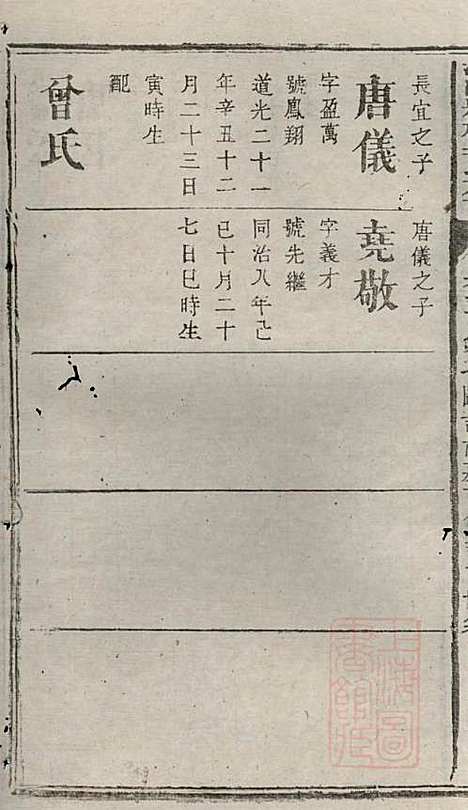 長宜之子
唐儀
字盈萬
號鳳翔
道光二十一
年辛丑十二
月二十三日
寅時生
配
曾氏
唐儀之子
堯敬
字義才
號先繼
同治八年己
巳十月二十
七日巳時生
上海圖書館藏